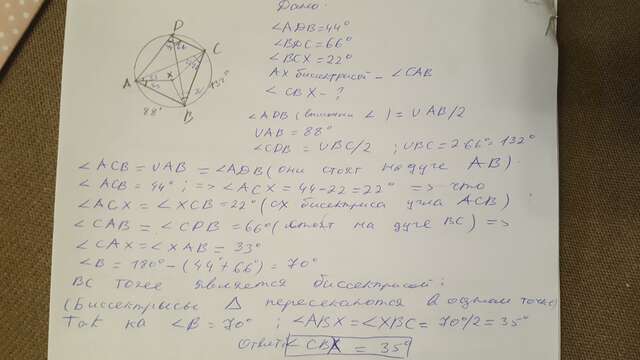 Дано:
∠ADB=44°
∠BDC=66°
∠BCX=22°
AX биссектрисой – ∠CAB
∠CBX – ?
∠ADB ( ∠ ) = ∪AB/2
∪AB = 88°
∠CDB = ∪BC/2 ; ∪BC=2·66°=132°
D
C
A
X
B
88°
132°
∠ACB = ∪AB = ∠ADB (они стоят на дуге AB).
∠ACB = 44° ; => ∠ACX = 44-22=22° => что
∠ACX = ∠XCB=22° (CX биссектриса угла ACB)
∠CAB = ∠CDB = 66° ( на дуге BC) =>
∠CAX=∠XAB = 33°
∠B = 180° – (44°+66°) = 70°
BC тоже является биссектрисой:
(Биссектрисы Δ пересекаются в одной точке)
Так ка ∠B = 70° ; ∠ABX=∠XBC= 70°/2 = 35°
Ответ: ∠CBX = 35°